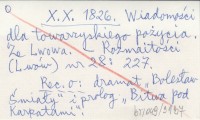 X.X. 1826. Wiadomości
dla towarzyskiego pożycia.
Ze Lwowa. Rozmaitości
(Lwów) nr 28: 227.
Rec. o: dramat „Bolesław
Śmiały" i prolog „Bitwa pod
Karpatami".